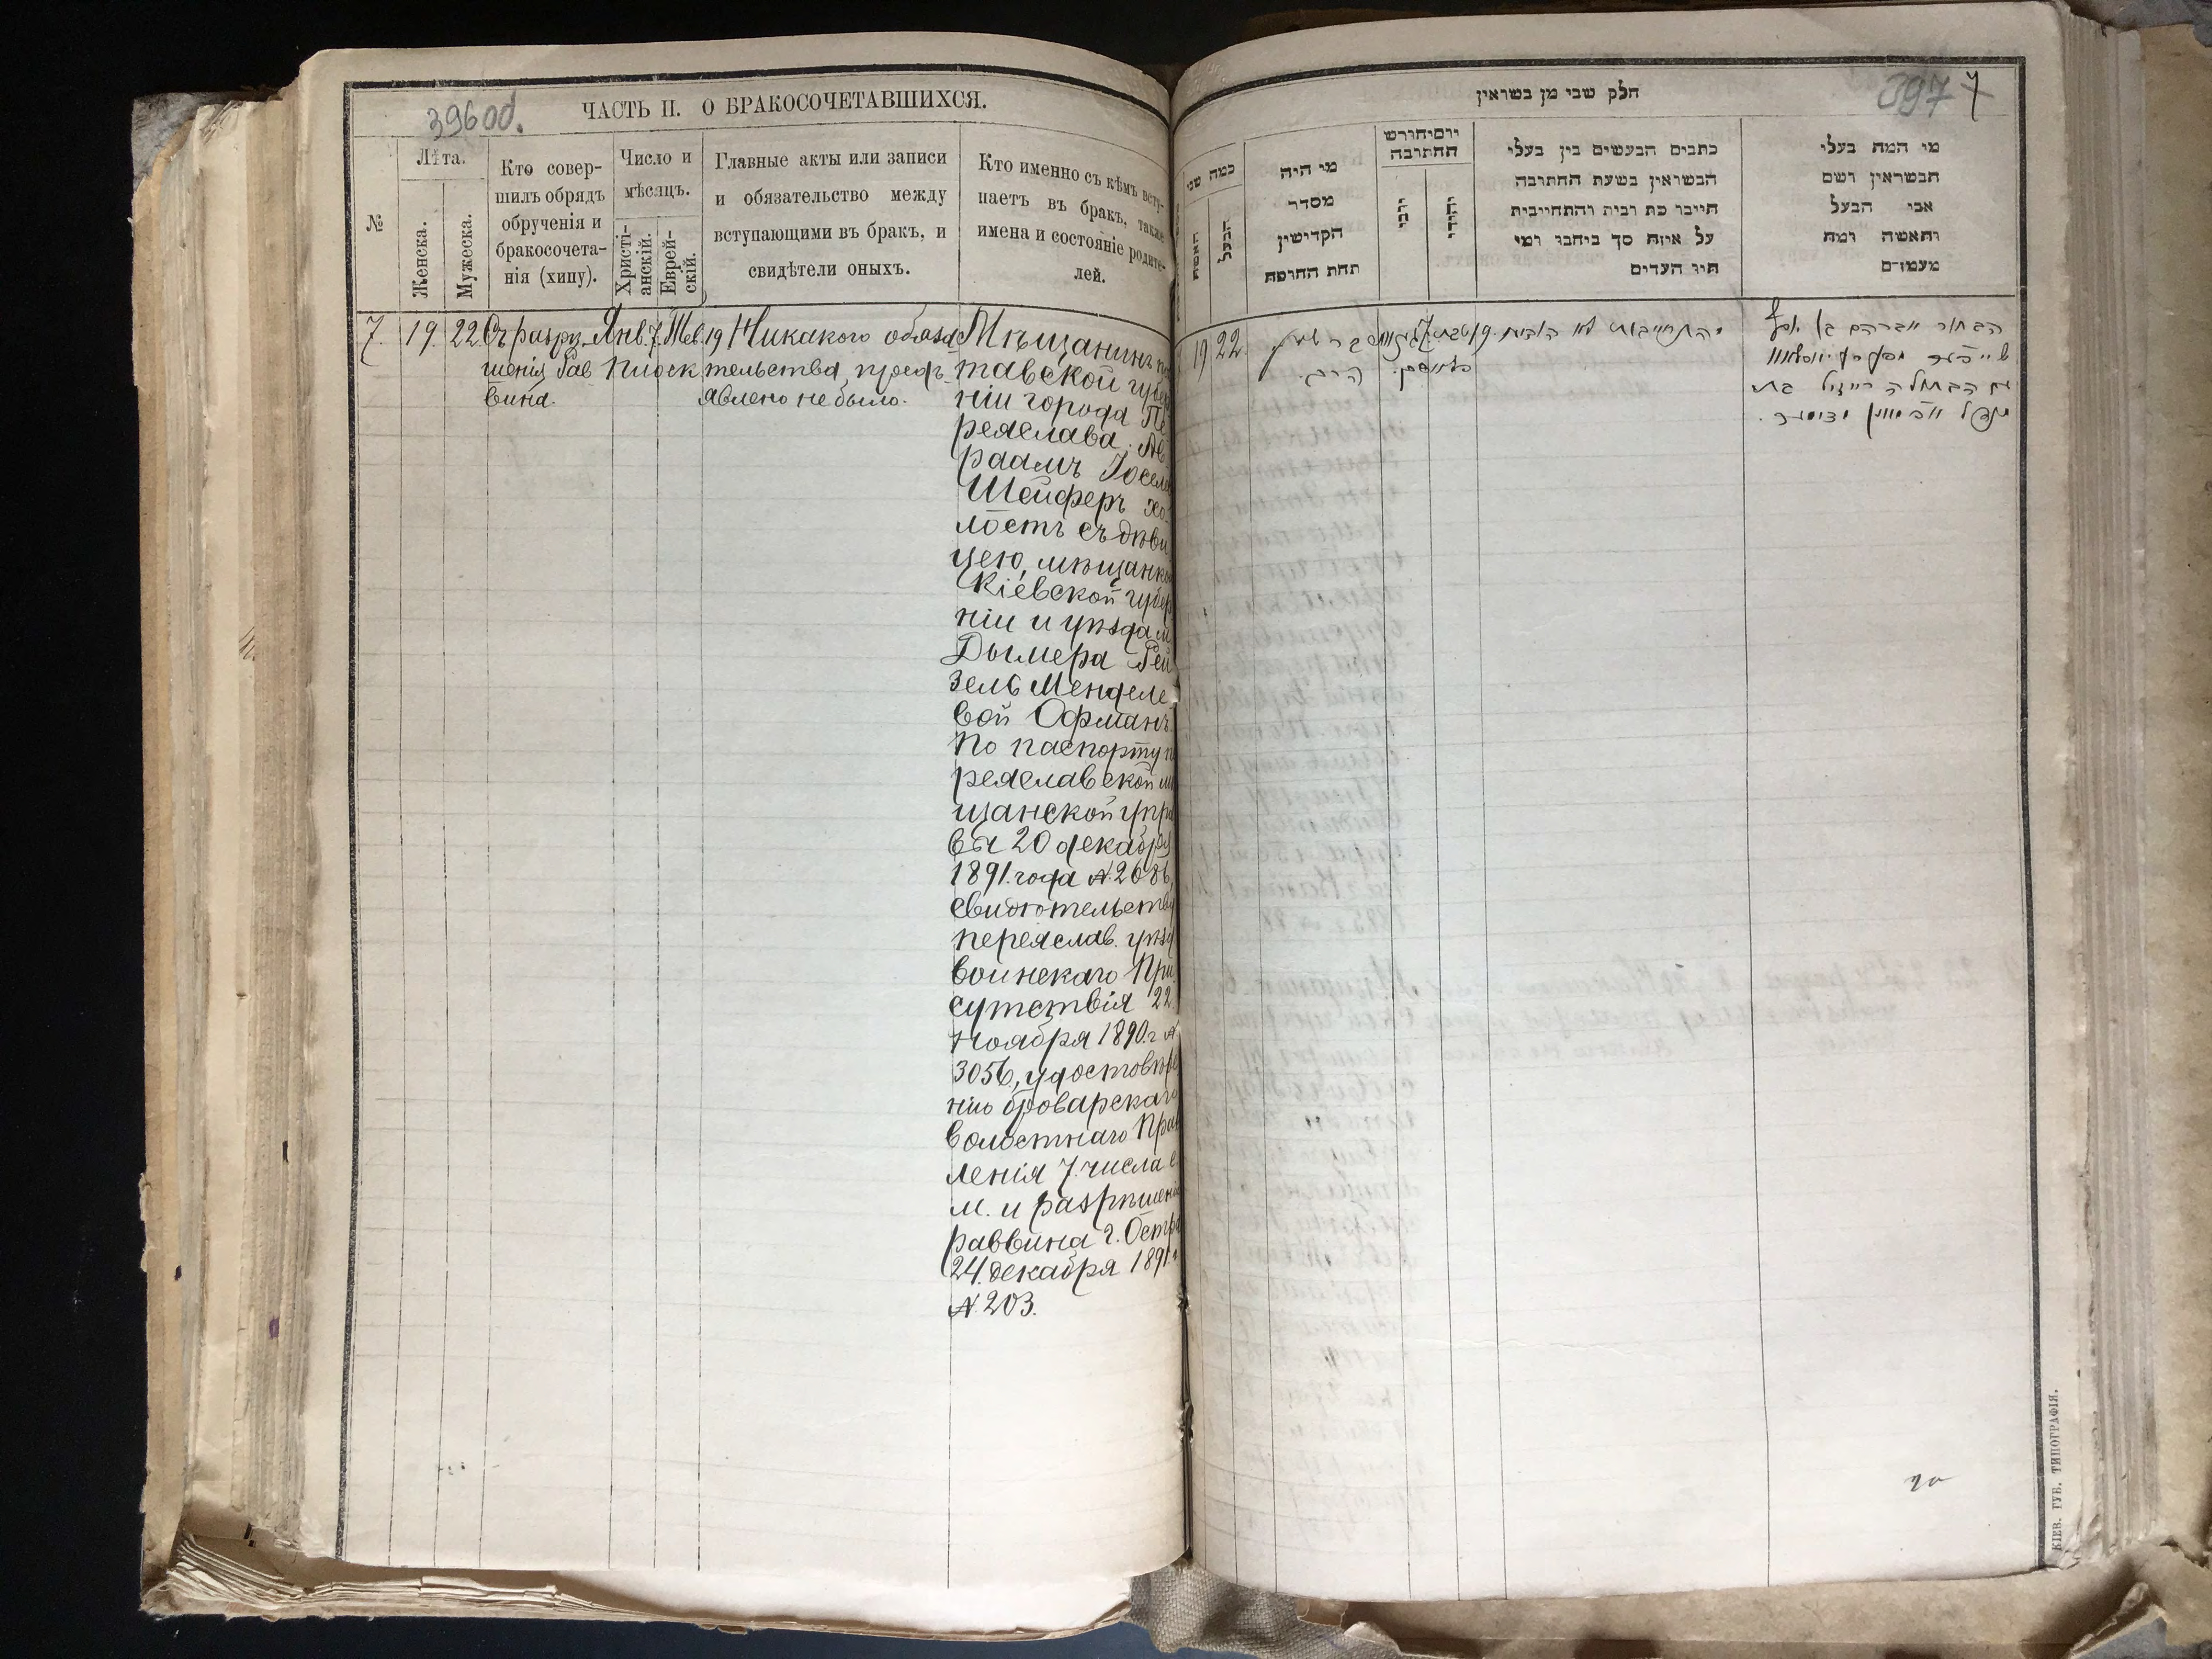 396 об.
ЧАСТЬ II. О БРАКОСОЧЕТАВШИХСЯ.
№
Лѣта.
Женска.
Мужеска.
Кто совер-
шилъ обрядъ
обрученія и
бракосочета-
нія (хипу).
Число и
мѣсяцъ.
Христі-
анскій.
Еврей-
скій.
Главные акты или записи
и обязательство между
вступающими въ бракъ, и
свидѣтели оныхъ.
Кто именно съ кѣмъ всту-
паетъ въ бракъ, также
имена и состояніе родите-
лей.
7. 19. 22.
Съ разрѣ
шенія Рав
вина.
Янв. 7. Тев. 19
Никакого обяза
тельства предъ-
явлено не было.
Мѣщанинъ по
тавской губер
ніи города Пе
реяслава Ав
раамъ Іосел
Шейферъ хо
лостъ съ дѣви
цею, мѣщанкой
Кіевской губер
ніи и уѣзда м
Дымера Рей
зель Менделе
вой Офманъ
По паспорту п
реяславской м
щанской упра
вы 20 декабря
1891. года №. 2086,
свидѣтельству
переяслав. уѣзд
воинскаго При
сутствія 22.
Ноября 1890. г №
3056, удостовѣре
нію броварскаго
волостнаго Прав
ленія 7. числа с.
м. и разрѣшенію
раввина г. Остра
24. декабря 1891. г
№. 203.
חלק שני מן נשואין
397
7
כמה שני
האשה
הבעל
מי היה
מסדר
הקדישין
תחת החופה
יום וחודש
החתונה
כתבים הנעשים בין בעלי
הנשואין בשעת החתונה
חייבו כת רבית והתחייבות
על איזה סך ביחבו ומי
היו העדים
מי המה בעלי
הנשואין ושם
אבי הבעל
והאשה ומה
מעמדם
19 22.
הבחור אברהם בן יוסף
שייפער
עם הבתולה רייזיל בת
מענדל
20
КІЕВ. ГУБ. ТИПОГРАФІЯ.